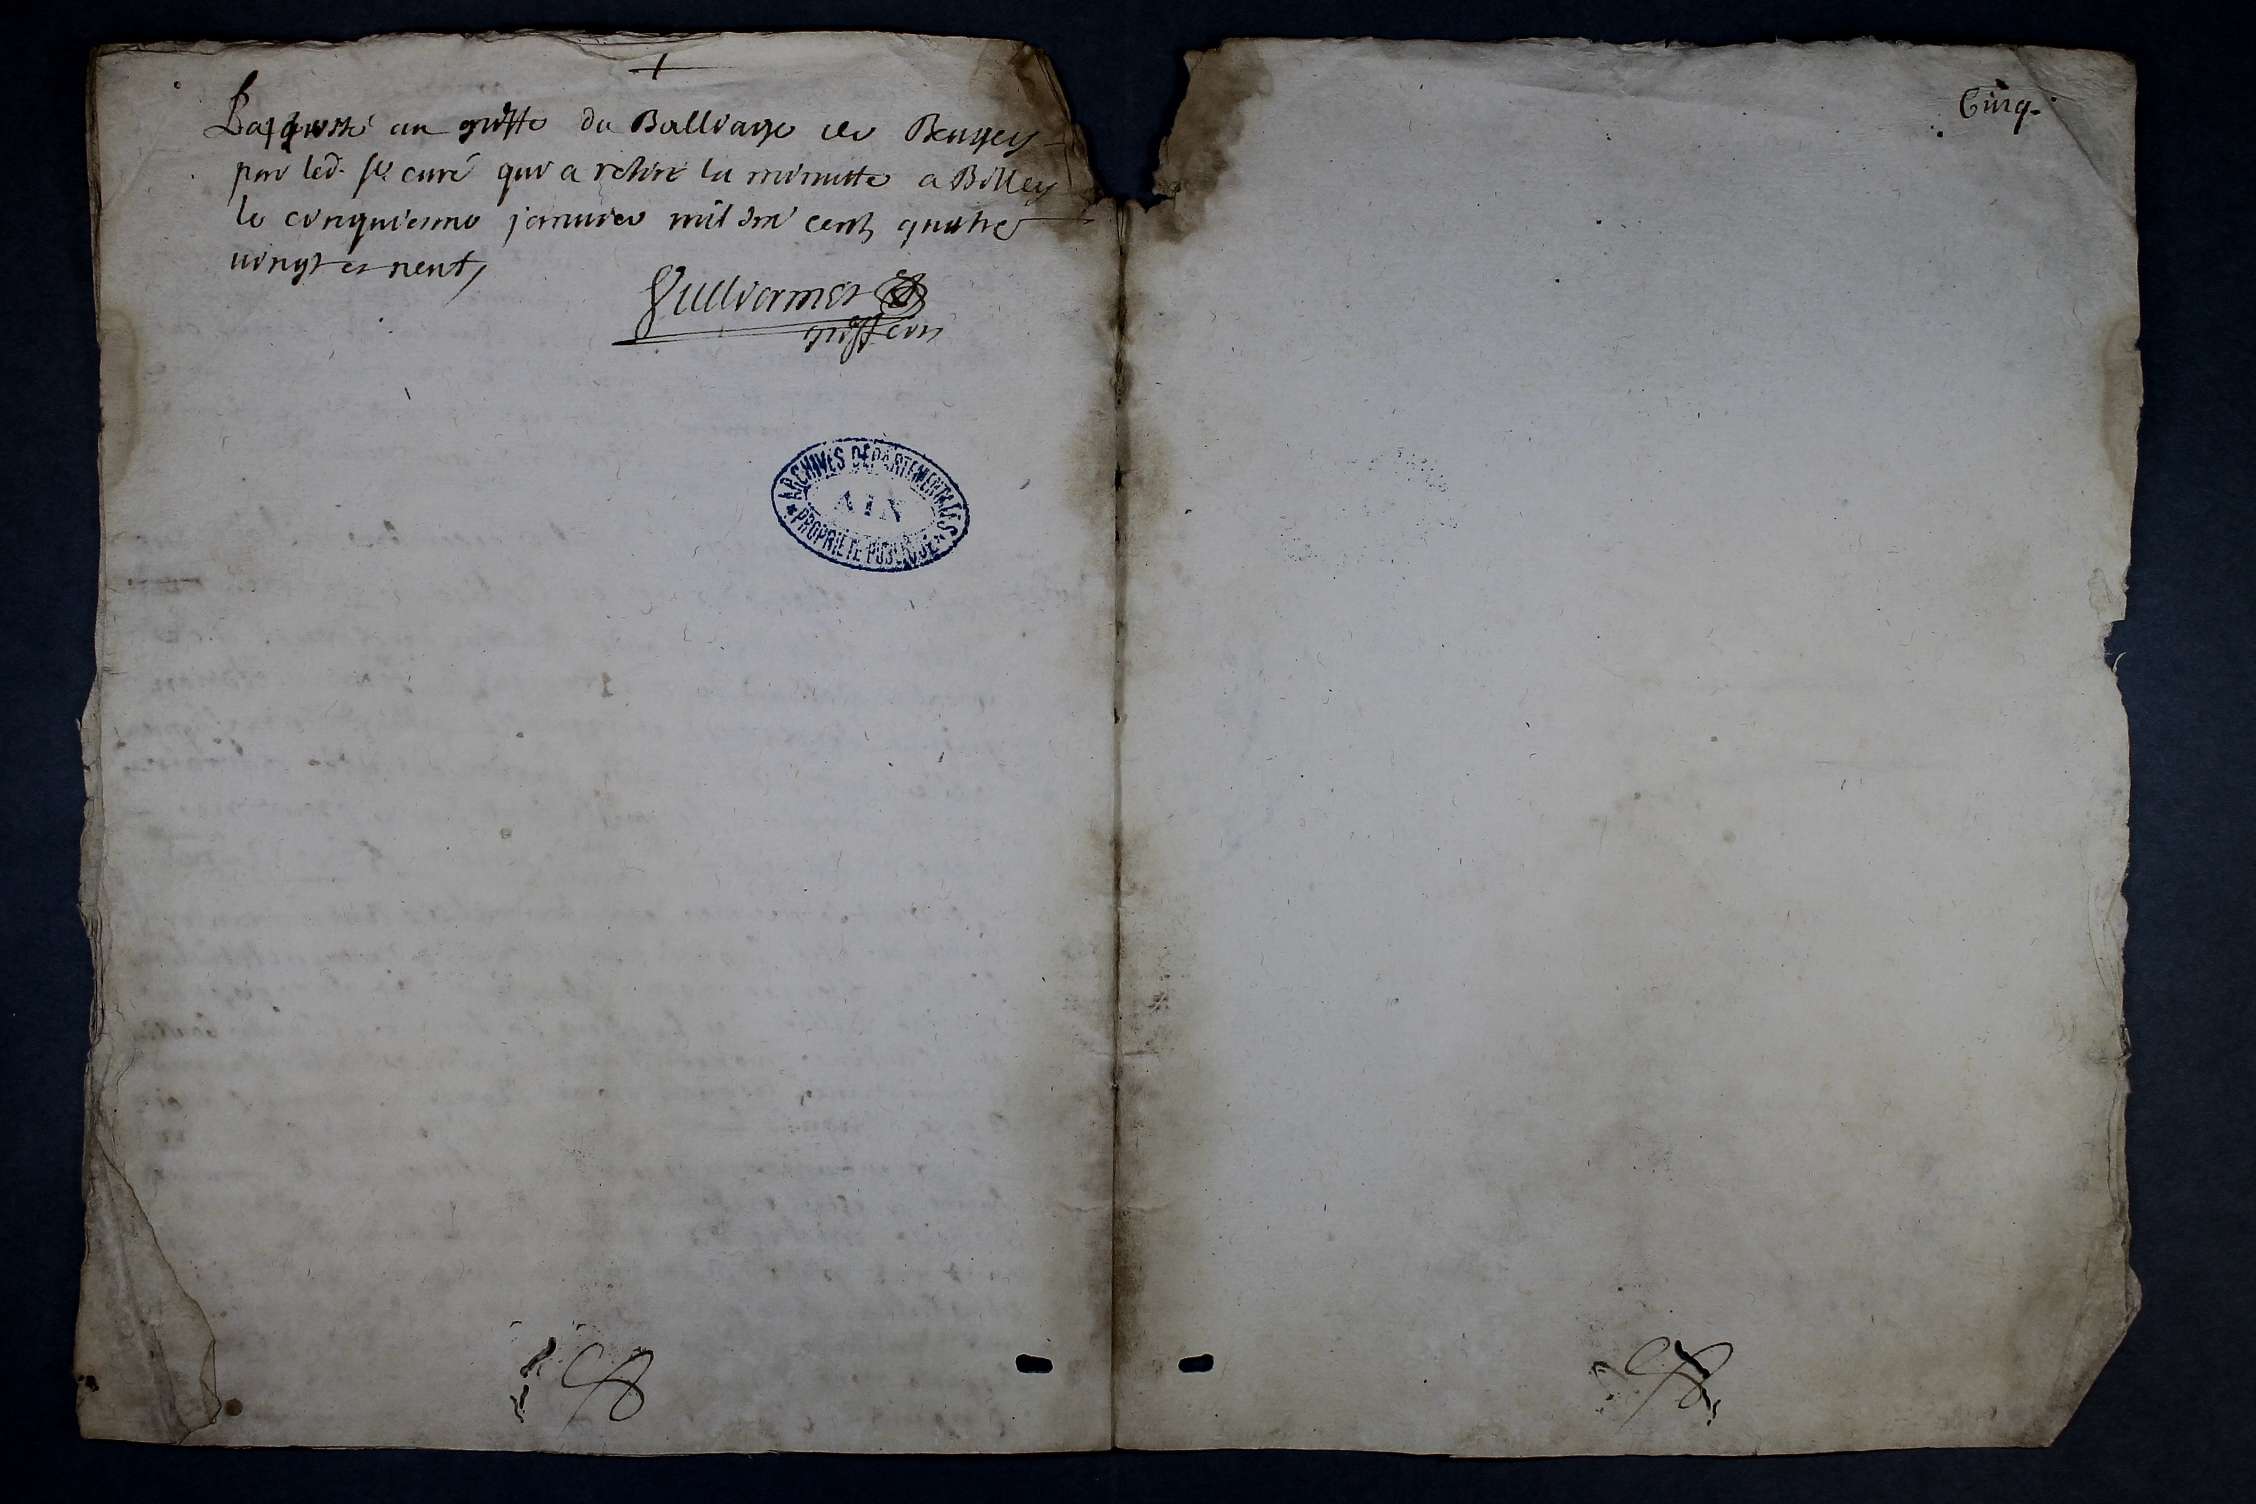 +
Rapporté au greffe du Balliage de Beugey
par led. sr curé qui a retiré la minutte a Belley
le cinquieme janvier mil six cent quatre
vingt et neufs
Guillermet
greffier
ARCHIVES DEPARTEMENTALES
AIN
PROPRIETE PUBLIQUE
Cinq.